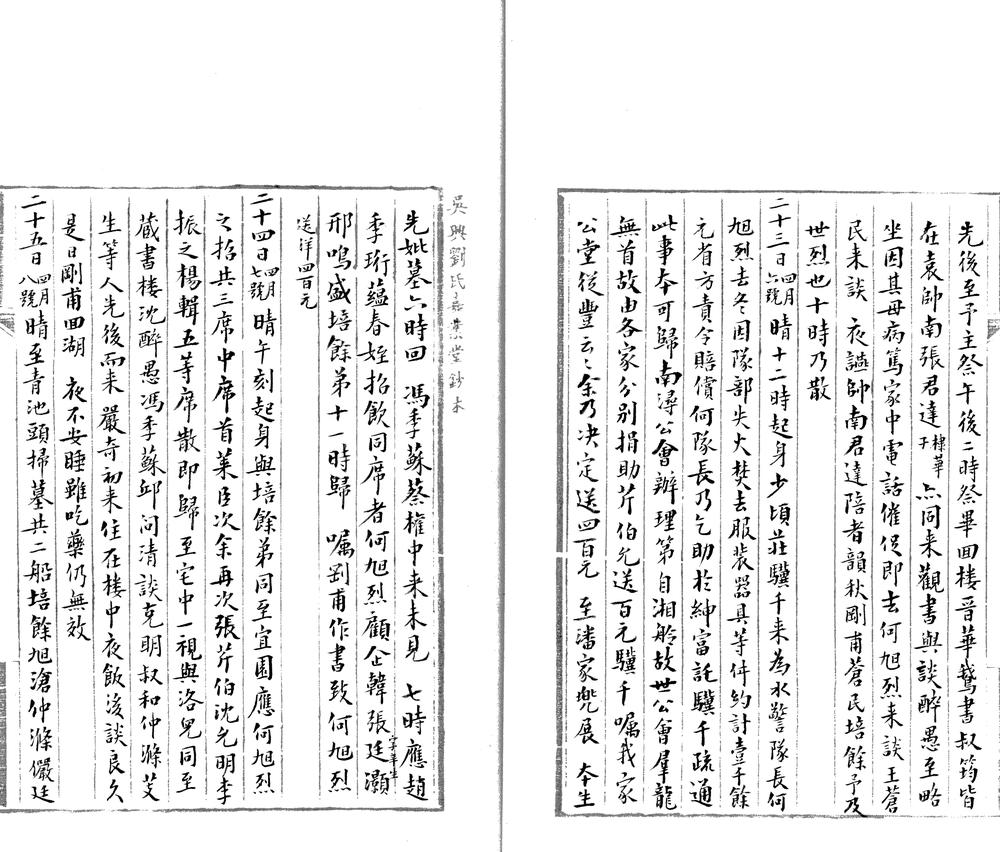 先後至予主祭午後二時祭畢回楼晋華鵝書叔筠皆
在袁帥南張君達棣華子亦同来觀書與談醉愚至略
坐因其母病篤家中電話催促即去何旭烈来談王蒼
民来談 夜讌帥南君達陪者韻秋剛甫蒼民培餘予及
世烈也十時乃散
二十三日四月六號晴十二時起身少頃莊驥千来為水警隊長何
旭烈去冬因隊部失火焚去服装器具等件約計壹千餘
元省方責令賠償何隊長乃乞助於紳富託驥千疏通
此事本可歸南潯公會辦理第自湘舲故世公會羣龍
無首故由各家分別捐助芹伯允送百元驥千嘱我家
公堂從豐云云余乃决定送四百元 至潘家兜展 本生
吳興劉氏嘉業堂鈔本
先妣墓六時回 馮季蘇蔡權中来未見 七時應趙
季珩蘊春姪招飲同席者何旭烈顧企韓張廷灝
邢鳴盛培餘弟十一時歸 嘱剛甫作書致何旭烈
送洋四百元
二十四日四月七號晴午刻起身與培餘弟同至宜園應何旭烈
之招共三席中席首萊臣次余再次張芹伯沈允明李
振之楊輯五等席散即歸至宅中一視與洛兒同至
藏書楼沈醉愚馮季蘇邱问清談克明叔和仲滌芟
生等人先後而来嚴奇初来住在楼中夜飯後談良久
是日剛甫回湖 夜不安睡雖吃藥仍無效
二十五日四月八號晴至青池頭掃墓共二船培餘旭滄仲滌儼廷